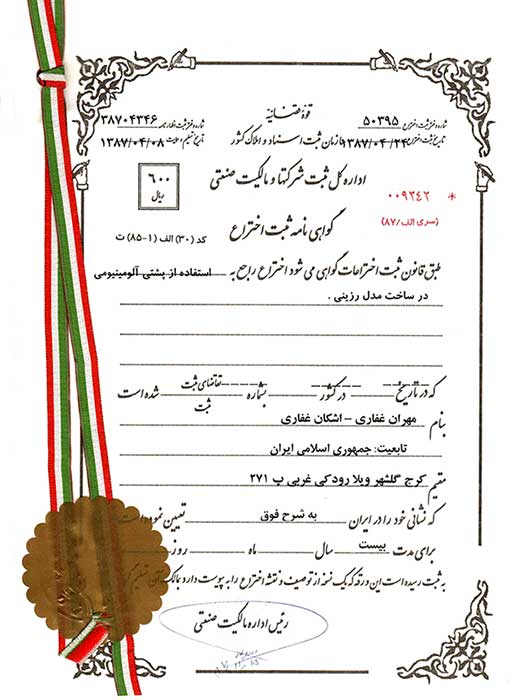 قوه قضائیه
شماره دفتر ثبت اختراع ۵۰۳۹۵
شماره دفتر ثبت اظهارنامه ۳۸۷۰۴۳۴۶
تاریخ ثبت اختراع ۱۳۸۷/۰۴/۲۴
سازمان ثبت اسناد و املاک کشور
تاریخ تسلیم ۱۳۸۷/۰۴/۰۸
اداره کل ثبت شرکتها و مالکیت صنعتی
۶۰۰
ریال
* ۰۰۹۳۴۲
(سری الف/۸۷)
گواهی نامه ثبت اختراع
کد (۳۰) الف (۱-۸۵) ت
طبق قانون ثبت اختراعات گواهی می شود اختراع راجع به استفاده از پشتی آلومینیومی
در ساخت مدل رزینی .
که در تاریخ در کشور بشماره تقاضای ثبت شده است
ثبت
بنام مهران غفاری – اشکان غفاری
تابعیت: جمهوری اسلامی ایران
مقیم کرج گلشهر ویلا رودکی غربی پ ۲۷۱
که نشانی خود را در ایران به شرح فوق تعیین نموده
برای مدت بیست سال ماه روز
به ثبت رسیده است این ورقه که یک نسخه از توصیف و نقشه اختراع را به پیوست دارد
رئیس اداره مالکیت صنعتی